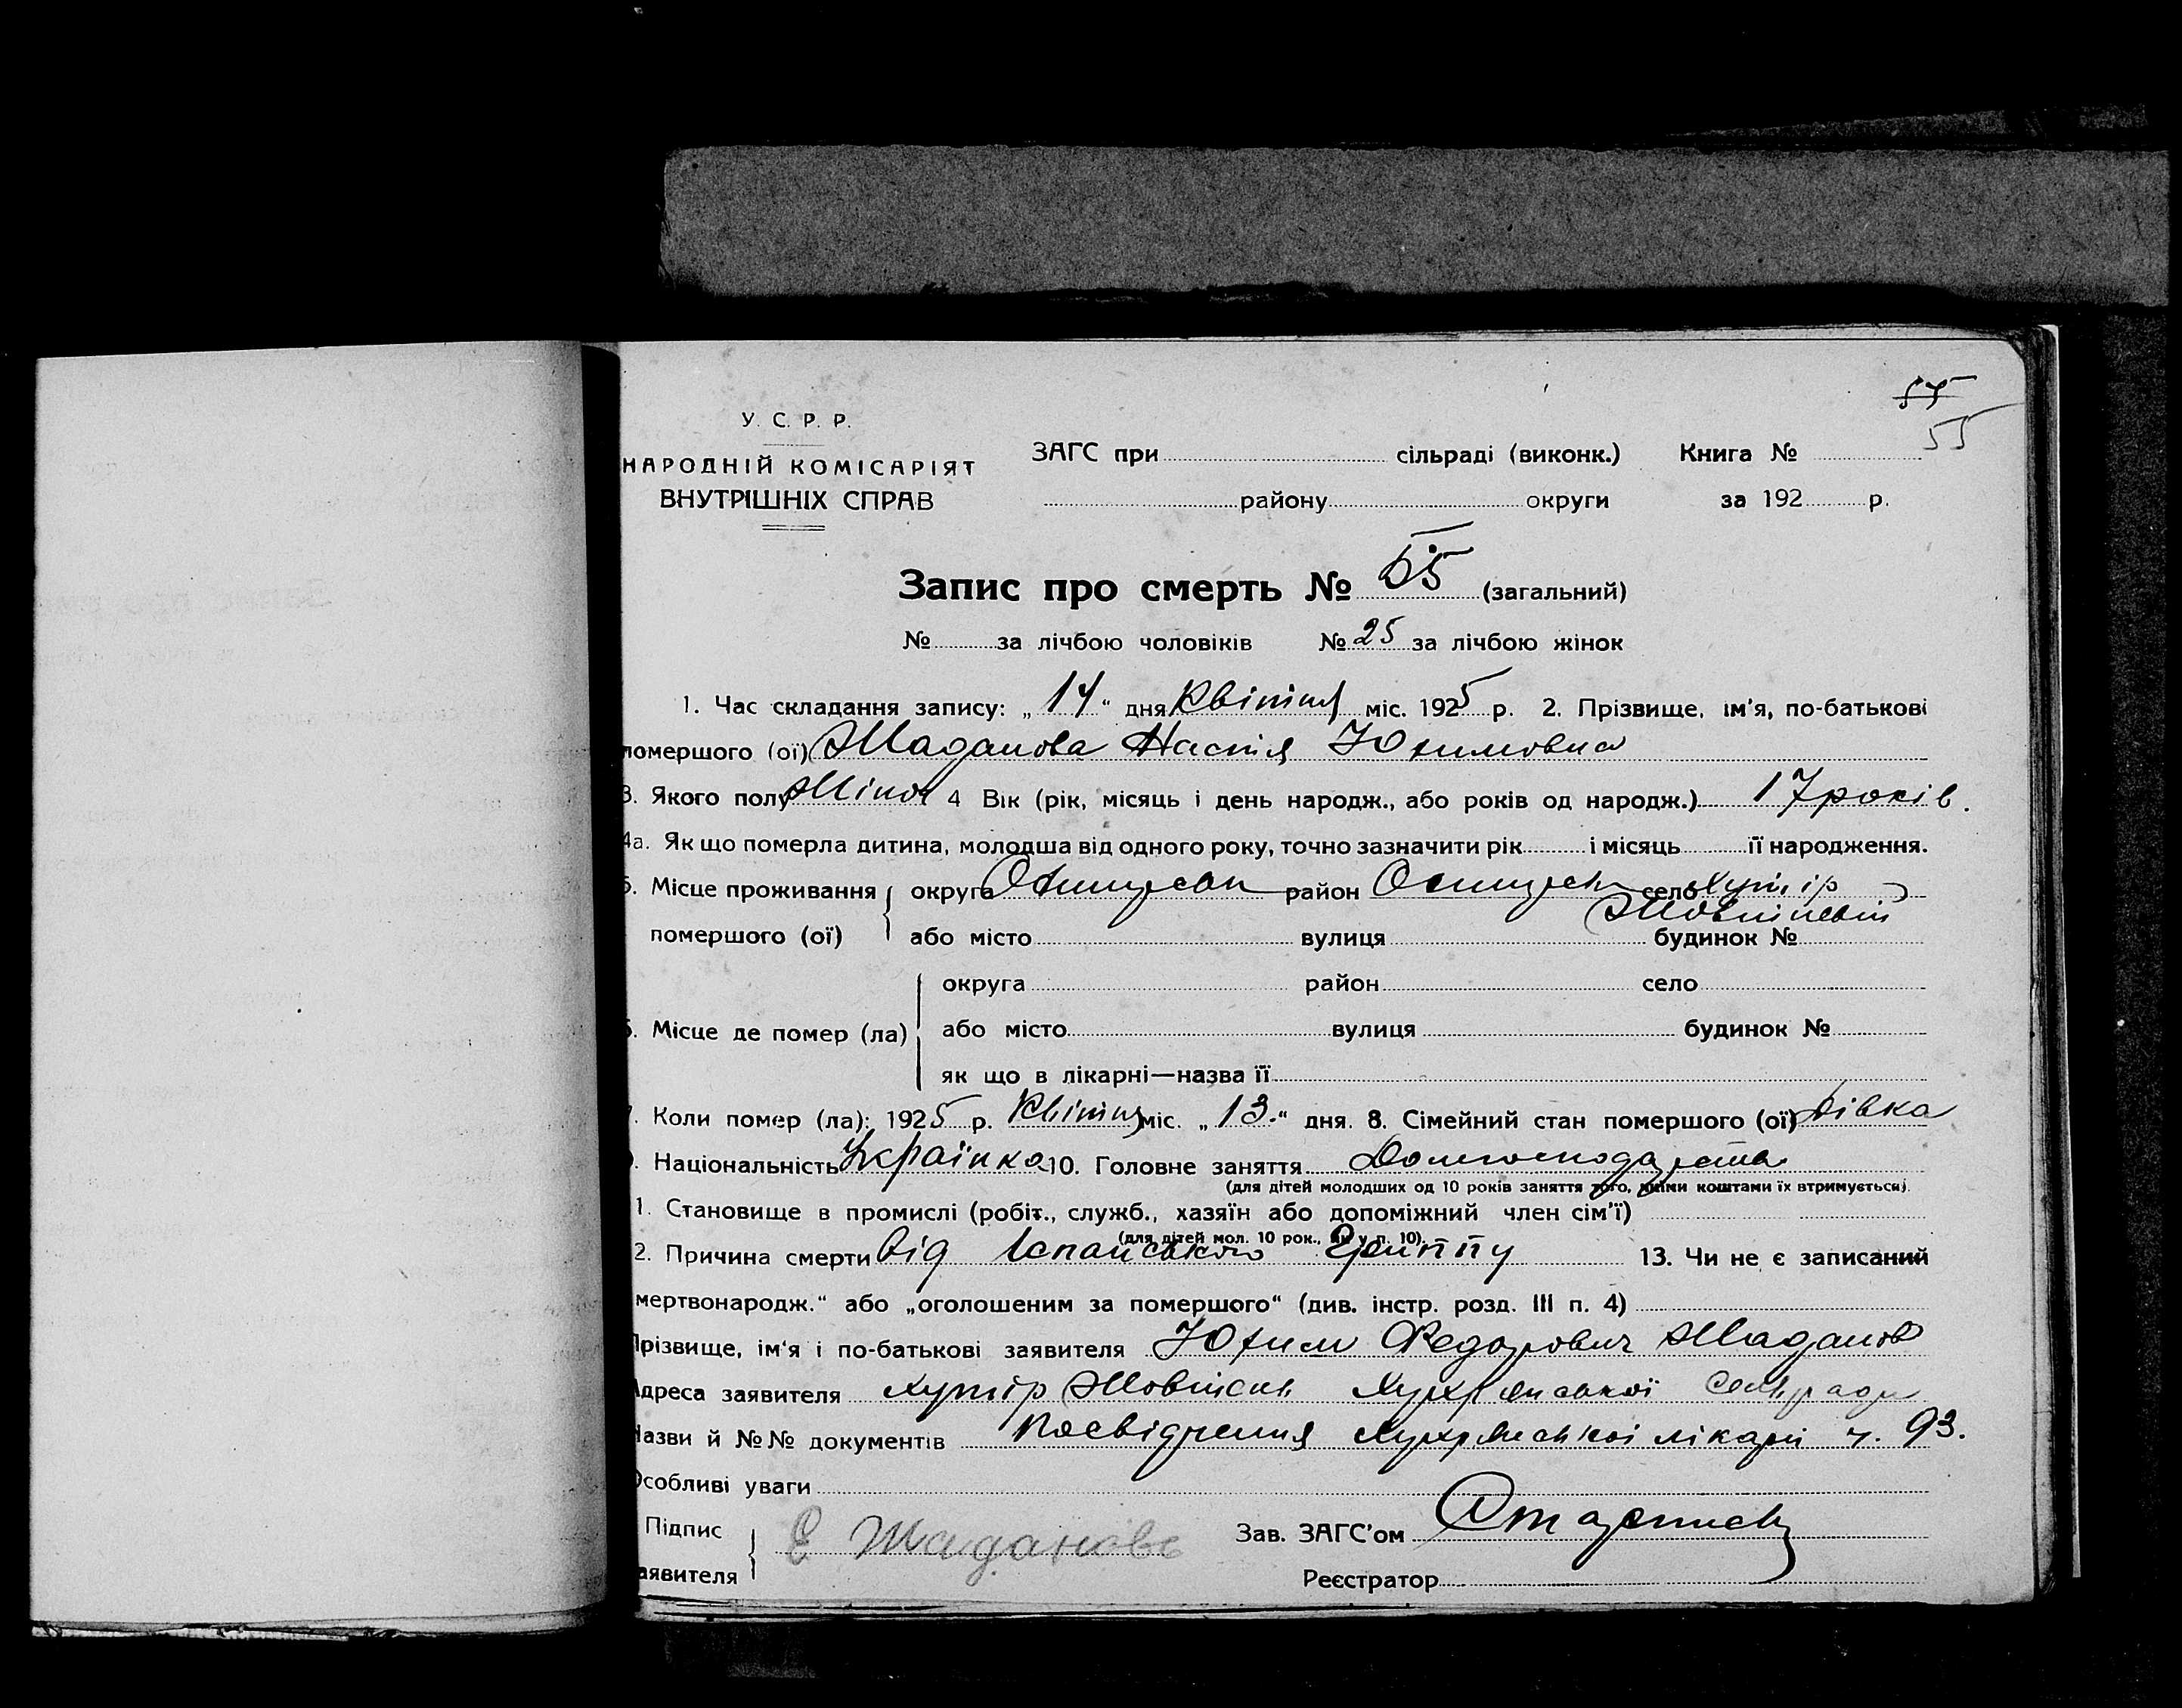 57
55
У. С. Р. Р.
НАРОДНІЙ КОМІСАРІЯТ
ВНУТРІШНІХ СПРАВ
ЗАГС при сільраді (виконк.) Книга №
району округи за 192 р.
Запис про смерть № 55 (загальний)
№ за лічбою чоловіків № 25 за лічбою жінок
1. Час складання запису: „14“ дня Квітня міс. 1925 р. 2. Прізвище, ім'я, по-батькові
помершого (ої) Жаданова Настя Юхимовна
3. Якого полу Жіноч 4 Вік (рік, місяць і день народж., або років од народж.) 17 років.
4а. Як що померла дитина, молодша від одного року, точно зазначити рік і місяць її народження.
5. Місце проживання округа район село хутір
Жовтневий
помершого (ої) або місто вулиця будинок №
округа район село
6. Місце де помер (ла) або місто вулиця будинок №
як що в лікарні—назва її
7. Коли помер (ла): 1925 р. Квітня міс. „13.“ дня. 8. Сімейний стан помершого (ої) дівка
9. Національність Українка 10. Головне заняття Домогосподарства
(для дітей молодших од 10 років заняття того, якими коштами їх втримується).
1. Становище в промислі (робіт., служб., хазяїн або допоміжний член сім'ї)
(для дітей мол. 10 рок., як у п. 10).
2. Причина смерти від Іспанського Гриппу 13. Чи не є записаний
мертвонародж.“ або „оголошеним за помершого“ (див. інстр. розд. III п. 4)
Прізвище, ім'я і по-батькові заявителя Юхим Федорович Жаданов
Адреса заявителя хутір Сельради
Назви й №№ документів Посвідчення лікарні ч. 93.
Особливі уваги
Підпис Е Жадановъ Зав. ЗАГС'ом
заявителя Реєстратор